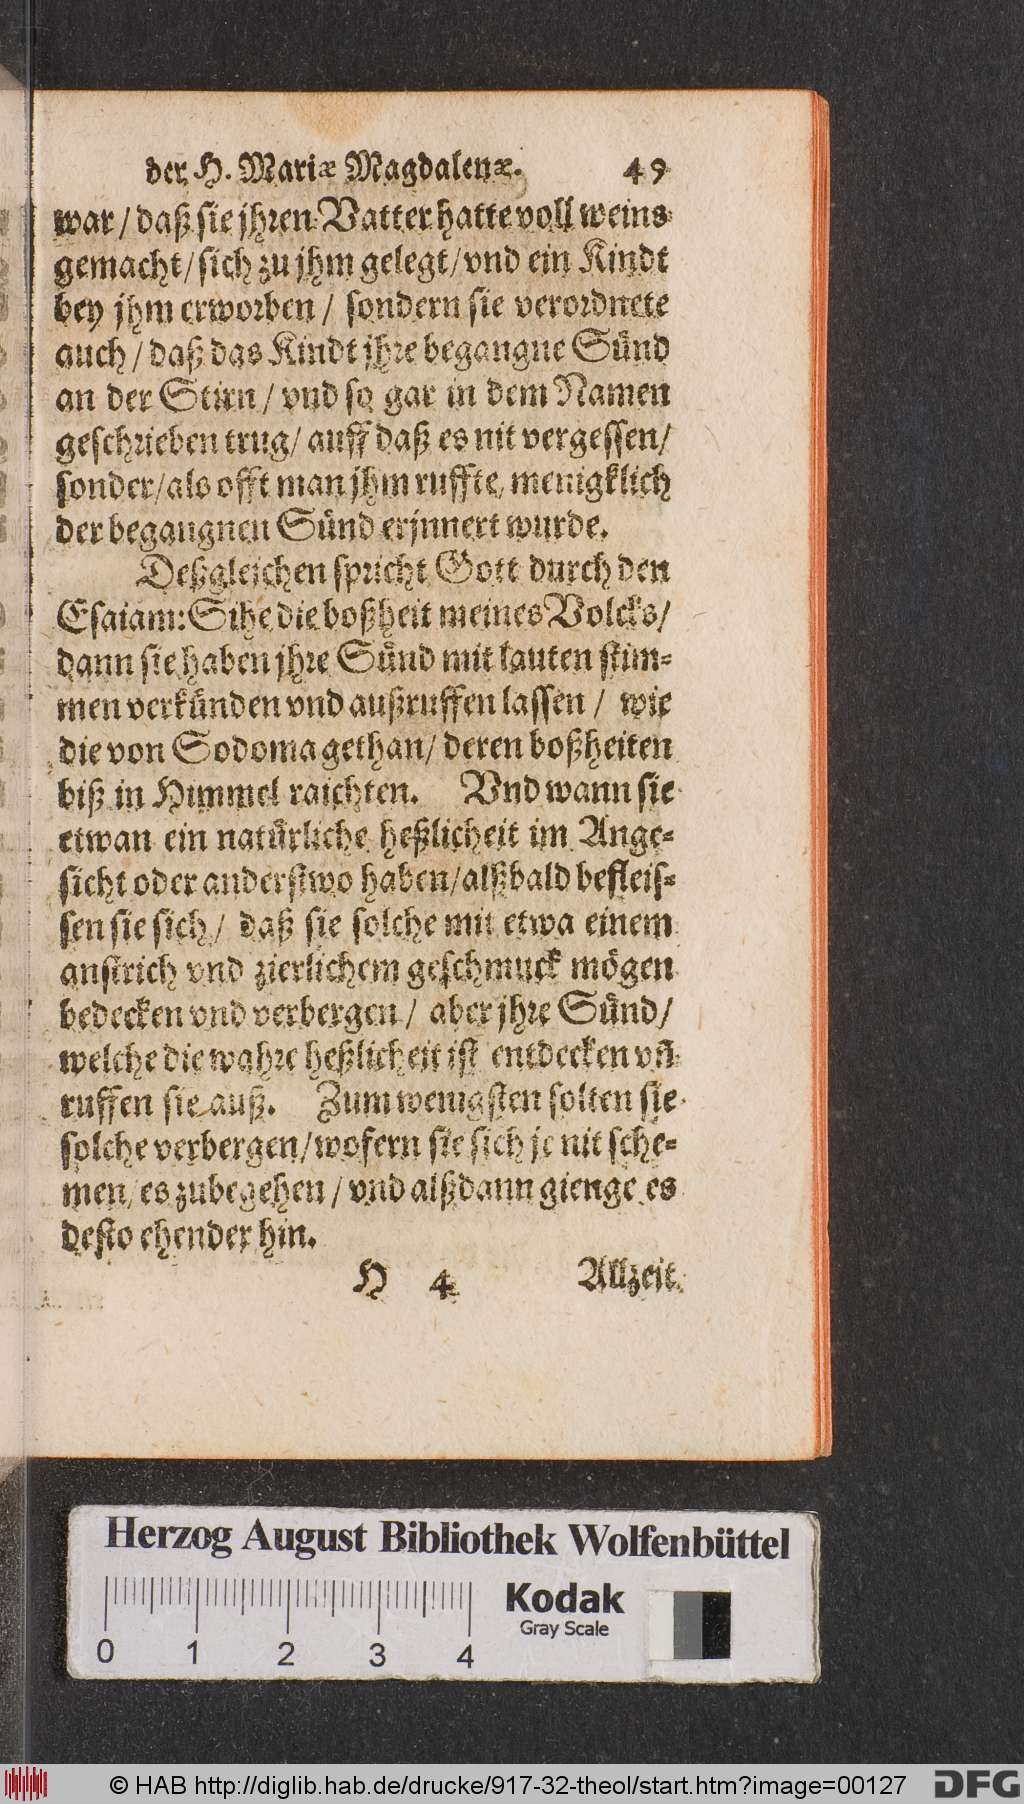 der H. Mariæ Magdalenæ. 49
war / daß sie jhren Vatter hatte voll weins
gemacht / sich zu jhm gelegt / vnd ein Kindt
bey jhm erworben / sondern sie verordnete
auch / daß das Kindt jhre begangne Sünd
an der Stirn / vnd so gar in dem Namen
geschrieben trug / auff daß es nit vergessen /
sonder / als offt man jhm ruffte, menigklich
der begangnen Sünd erjnnert wurde.
Deßgleichen spricht Gott durch den
Esaiam: Sihe die boßheit meines Volcks /
dann sie haben jhre Sünd mit lauten stim-
men verkünden vnd außruffen lassen / wie
die von Sodoma gethan / deren boßheiten
biß in Himmel raichten. Vnd wann sie
etwan ein natürliche heßlicheit im Ange-
sicht oder anderstwo haben / alßbald befleis-
sen sie sich / daß sie solche mit etwa einem
anstrich vnd zierlichem geschmuck mögen
bedecken vnd verbergen / aber jhre Sünd /
welche die wahre heßlicheit ist entdecken vñ
ruffen sie auß. Zum wenigsten solten sie
solche verbergen / wofern sie sich je nit sche-
men / es zubegehen / vnd alßdann gienge es
desto ehender hin.
H 4 Allzeit
Herzog August Bibliothek Wolfenbüttel
Kodak
Gray Scale
0 1 2 3 4
© HAB http://diglib.hab.de/drucke/917-32-theol/start.htm?image=00127
DFG